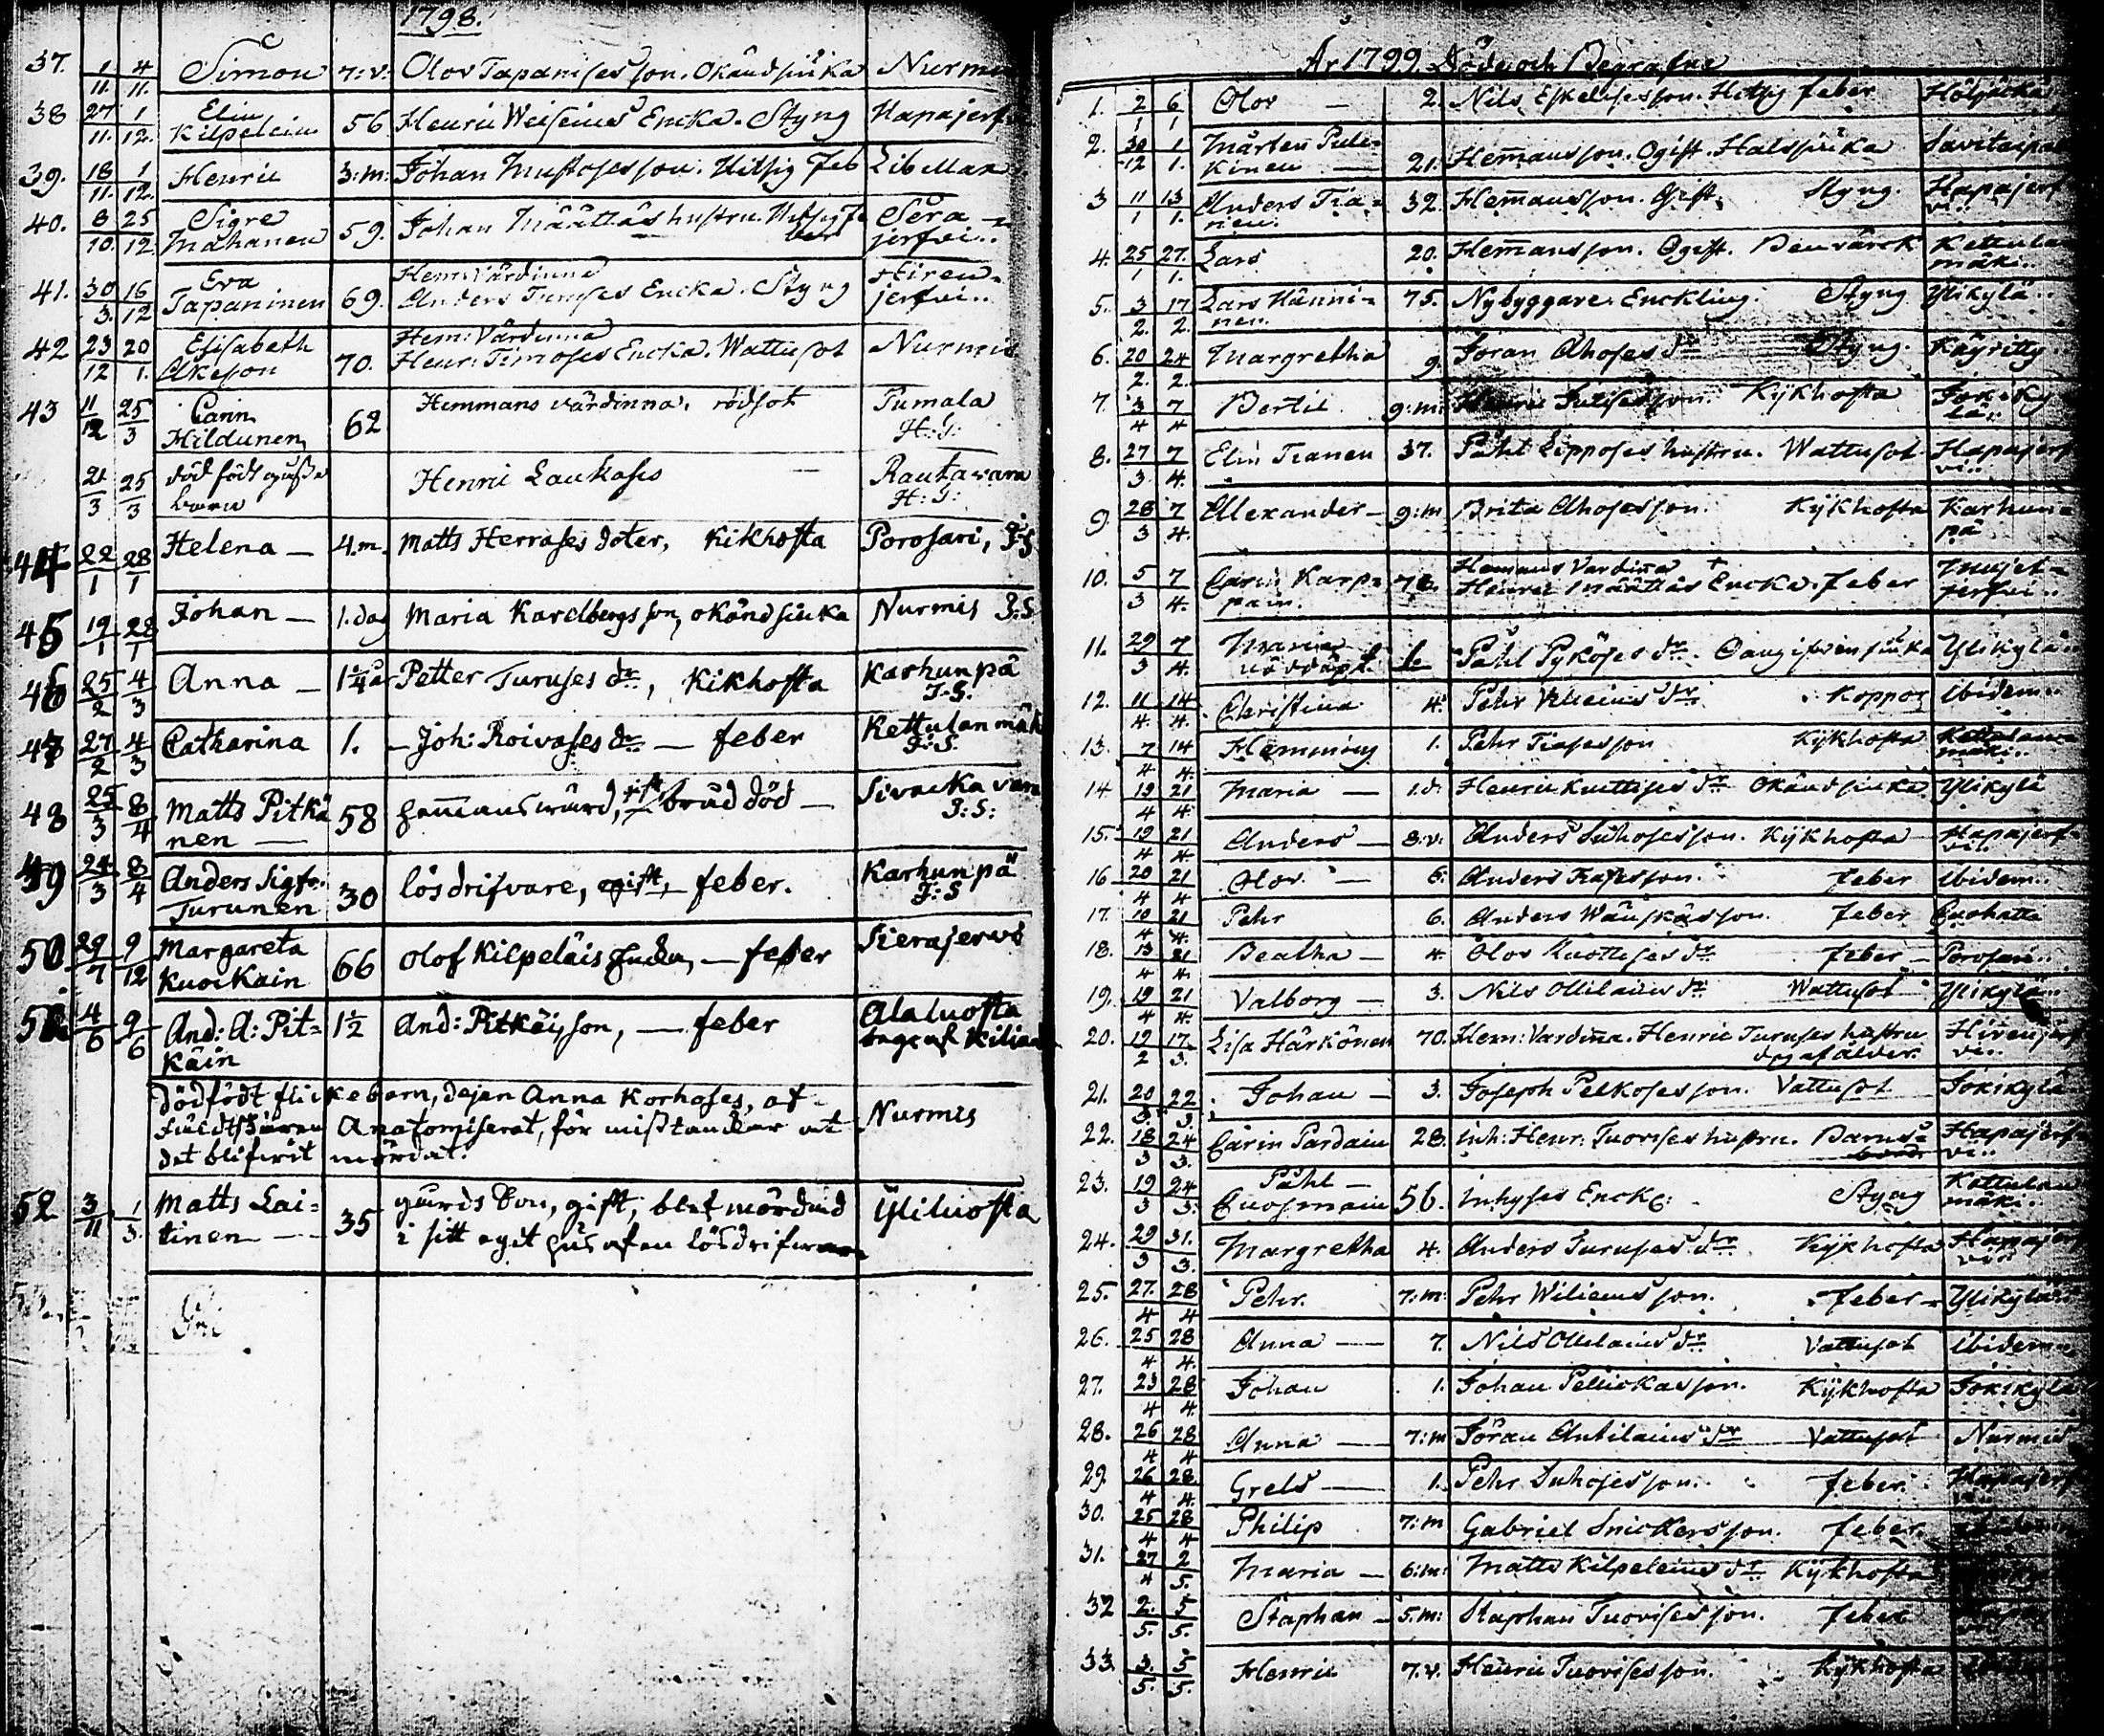 1798.
37. 1/11. 4/11. Simon 7:v: Olov Tapanises son. Okänd siuka Nurmis
38 27/11. 1/12. Elin Kilpelein 56 Henric Weiseins Encka. Styng Hapajerfvi
39. 18/11. 1/12. Henric 3:m: Johan Mustoses son. Hitsig feb Lib Max
40. 8/10. 25/12 Sigre Mähänen 59. Johan Määttäs hustru. Hitsig feber Sera-
jerfvi..
41. 30/3. 16/12 Eva Tapaninen 69. Hem: Värdinna
Anders Turuses Encka. Styng Hiren-
jerfvi..
42 23/12 20/1. Elisabeth Åkeson 70. Hem: Värdinna
Henr: Timoses Encka. Wattusot Nurmis
43 11/12 25/3 Carin Hildunen 62 Hemmans värdinna, rödsot Pumala
H: G:
21/3 25/3 död födt gosse barn Henric Laukases Rautavara
H: G:
44 22/1 28/1 Helena — 4.m. Matts Herrases doter, Kikhosta Porosari, J:S
45 19/1 28/1 Johan — 1.dag Maria Karelbergs son, okänd siuka Nurmis J:S
46 25/2 4/3 Anna — 1¼ år Petter Turuses dr, Kikhosta Karhunpä
J:S.
47 27/2 4/3 Catharina 1. — Joh: Roivases dr — feber Kettulanmäk
J:S.
48 25/3 8/4 Matts Pitkä
nen — 58 hemmansvärd, gift, bråd död — Sivacka vara
J:S:
49 24/3 8/4 Anders Sigfr.
Turunen 30 lösdrifvare, ogift, — feber. Karhunpä
J:S
50 29/7 9/12 Margareta
Kuoikain 66 Olof Kilpeläis Encka, — feber Sierajerwi
51 4/6 9/6 And: A: Pit=
käin 1½ And: Pitkäis son, — feber Alaluosta
begraf
Dödfödt flickebarn, dejan Anna Korhoses, af
Anatomiserat, för misstankar at
det blifwit mördat. Nurmis
52 3/11 1/3. Matts Lai=
tinen — 35 gårds son, gift, blef mördad
i sitt eget hus af en lösdrifware Yliluosta
År 1799. Döde och Begrafne
1. 2/1 6/1 Olov — 2. Nils Eskelises son. Hetsig feber Höljäkä
2. 30/12 1/1. Mårten Puli-
kinen — 21. Hem̄ans son. Ogift. Halssiuka Savitaipal
3 11/1 13/1. Anders Tia-
nen. 32. Hem̄ans son. Gift. Styng. Hapajerf-
vi..
4. 25/1 27./1. Lars 20. Hem̄ans son. Ogift. Benvärck Kettulan
mäki..
5. 3/2. 17/2. Lars Hänni-
nen. 75. Nybyggare. Enckling. Styng Ylikylä..
6. 20/2. 24/2. Margretha 9. Jöran Ahoses dr Styng. Käyritty..
7. 3/4 7/4 Bertil 9:m: Henric son. Kykhosta Joki-ky-
lä..
8. 27/3 7/4. Elin Tianen 37. Påhl Lipposes hustru. Wattusot Hapajerf
vi..
9. 28/3 7/4. Alexander — 9:m Brita Ahoses son. Kykhosta Karhun-
pä
10. 5/3 7/4. Carin Karp-
pain. 72. Hemans Vardiña
Henric Määttäs Encka. feber Mujet-
jerfvi..
11. 29/3 7/4. Maria
nöddöpt. 1. Påhl Pyköses dr. Oangifven siuka Ylikylä..
12. 11/4. 14/4. Christina 4. Pehr dr. Koppor Ibidem..
13. 7/4 14/4. Hemming 1. Pehr Tiases son Kykhosta Kettulan-
mäki..
14 19/4 21/4. Maria — 1.d. Henric Knuttises dr Okänd siuka Ylikylä
15. 19/4 21/4. Anders — 8:v. Anders Suhoses son. Kykhosta Hapajerf-
vi..
16 20/4 21/4 Olov — 6. Anders Tiases son. feber Ibidem..
17. 18/4 21/4. Pehr 6. Anders Wänskäs son. feber
18. 13/4 21/4 Beatha — 4. Olov Kuottises dr. feber — Porosari..
19. 19/4 21/4. Valborg — 3. Nils Ollilains dr Wattusot Ylikylä..
20. 19/2 17./3. Lisa Härkönen 70. Hem: Vardiña. Henric Turuses hustru
dog af ålder. Hirenjerf
vi..
21. 20/3. 22/3. Johan — 3. Joseph Pelkoses son. Vattusot Jokikylä
22. 18/3 24/3. Carin Pardain 28. Inh: Henr: Tuovises hustru. Barns-
börd. Hapajerf-
vi..
23. 19/3 24/3. Påhl —
Cuosmain 56. Inhyses Enckl: Styng Kettulan
mäki..
24. 29/3 31./3. Margretha 4. Anders Turuses dr Kykhosta Hapajerf
vi..
25. 27./4 28/4 Pehr. 7:m: Pehr Wiliems son. feber — Ylikylä..
26. 25/4 28/4. Anna — 7. Nils Ollilains dr Vattusot Ibidem..
27. 23/4 28/4. Johan 1. Johan Pellickas son. Kykhosta Jokikylä
28. 26/4 28/4 Anna — 7:m Jöran Antilains dr Vattusot Nurmis
29. 26/4 28/4. Grels — 1. Pehr Suhoses son. feber. Hapajerf
vi..
30. 25/4 28/4 Philip 7:m Gabriel Snickers son. feber. Ibidem
31. 27/4 2/5. Maria — 6:m: Matts Kilpeleins dr Kykhosta
32 2./5. 5/5. Staphan — 5.m: Staphan Tuovises son. feber
33. 3./5. 5/5. Henric 7.v. Henric Tuovises son. Kykhosta